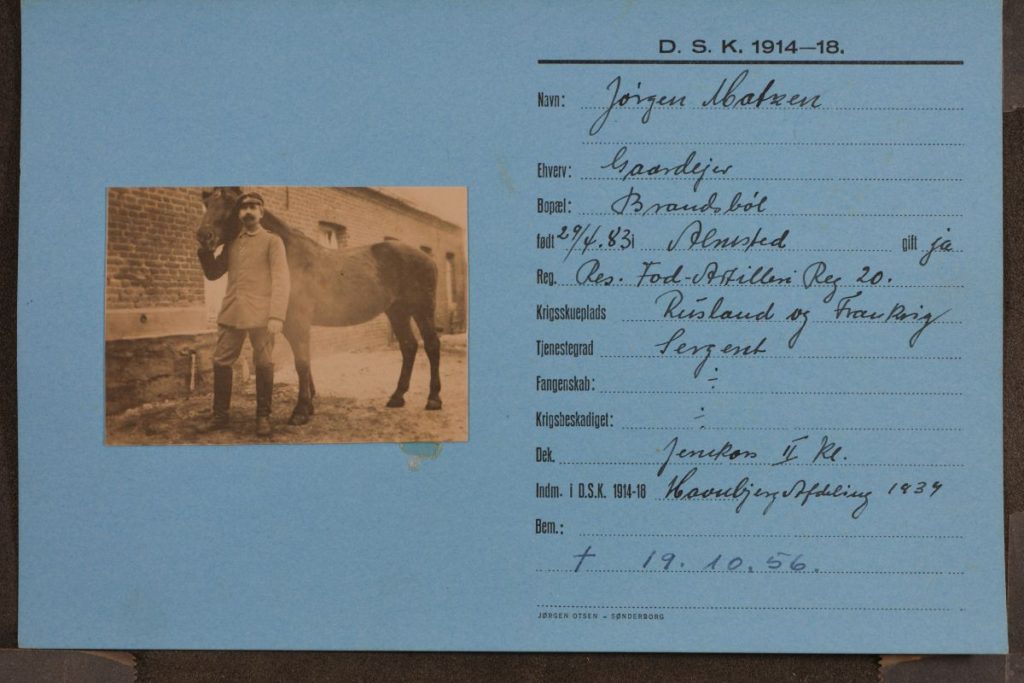 D. S. K. 1914—18.
Navn: Jørgen Matzen
Ehverv: Gaardejer
Bopæl: Brandsbøl
født 29/4.83 i Almsted gift ja
Reg. Res. Fod-Artilleri Reg 20.
Krigsskueplads Rusland og Frankrig
Tjenestegrad Sergent
Fangenskab: ÷
Krigsbeskadiget: ÷
Dek. Jernkors II Kl.
Indm. i D.S.K. 1914-18 Havnbjerg Afdeling 1937
Bem.:
† 19.10.56.
JØRGEN OTSEN – SØNDERBORG